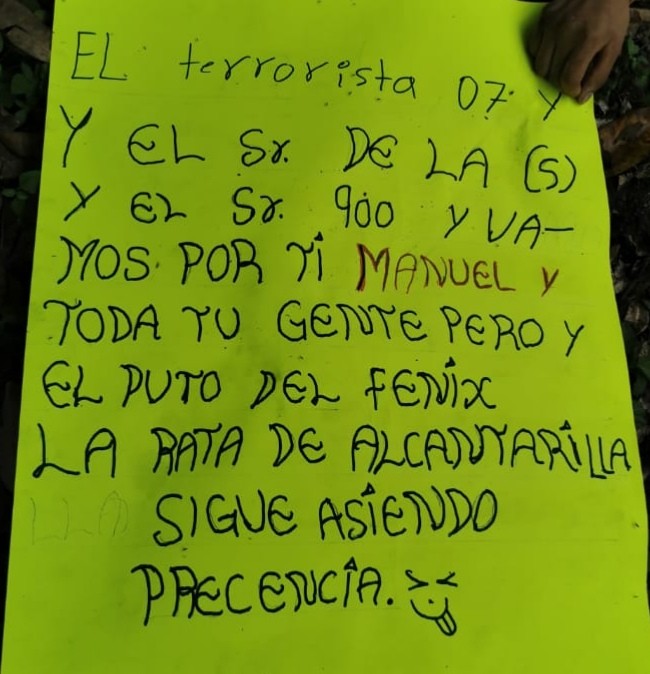 EL terrorista 07 y
Y EL Sr. DE LA (S)
Y EL Sr. 900 Y VA-
MOS POR Ti MANUEL y
TODA TU GENTE PERO y
EL PUTO DEL FENiX
LA RATA DE ALCANTARiLLA
SIGUE ASiENDO
PRECENCiA.